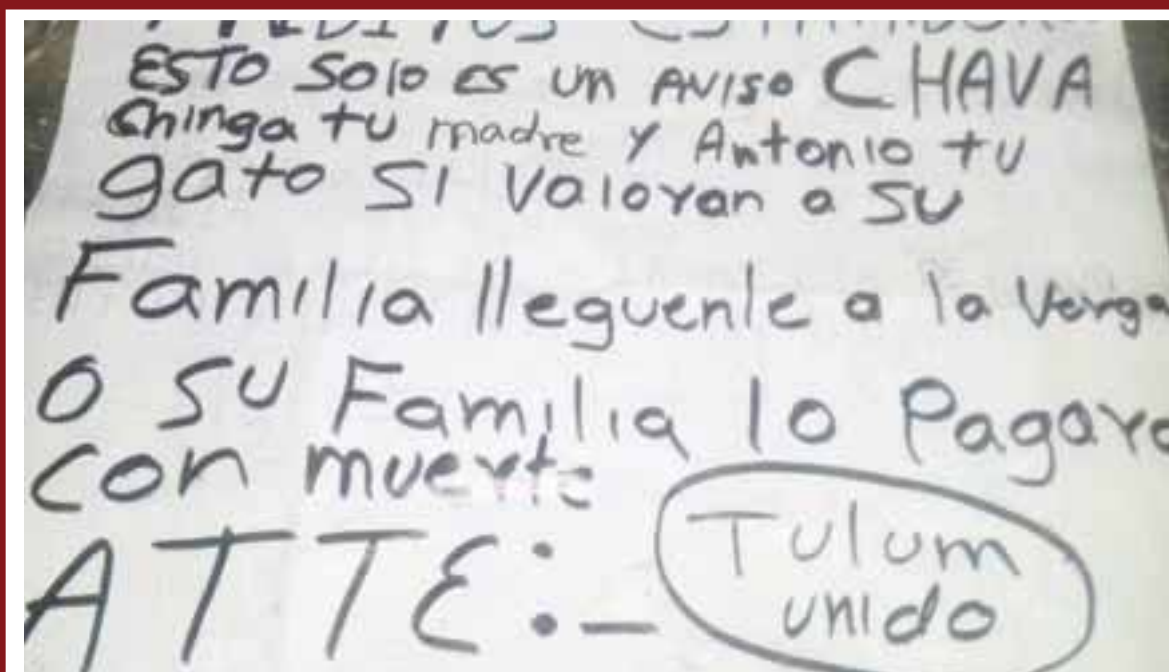 ESTO SOLO ES UN AVISO CHAVA
Chinga tu madre Y Antonio tu
gato SI Valoran a SU
Familia lleguenle a la Verga
O SU Familia lo Pagara
con muerte
ATTE:-
Tulum
unido